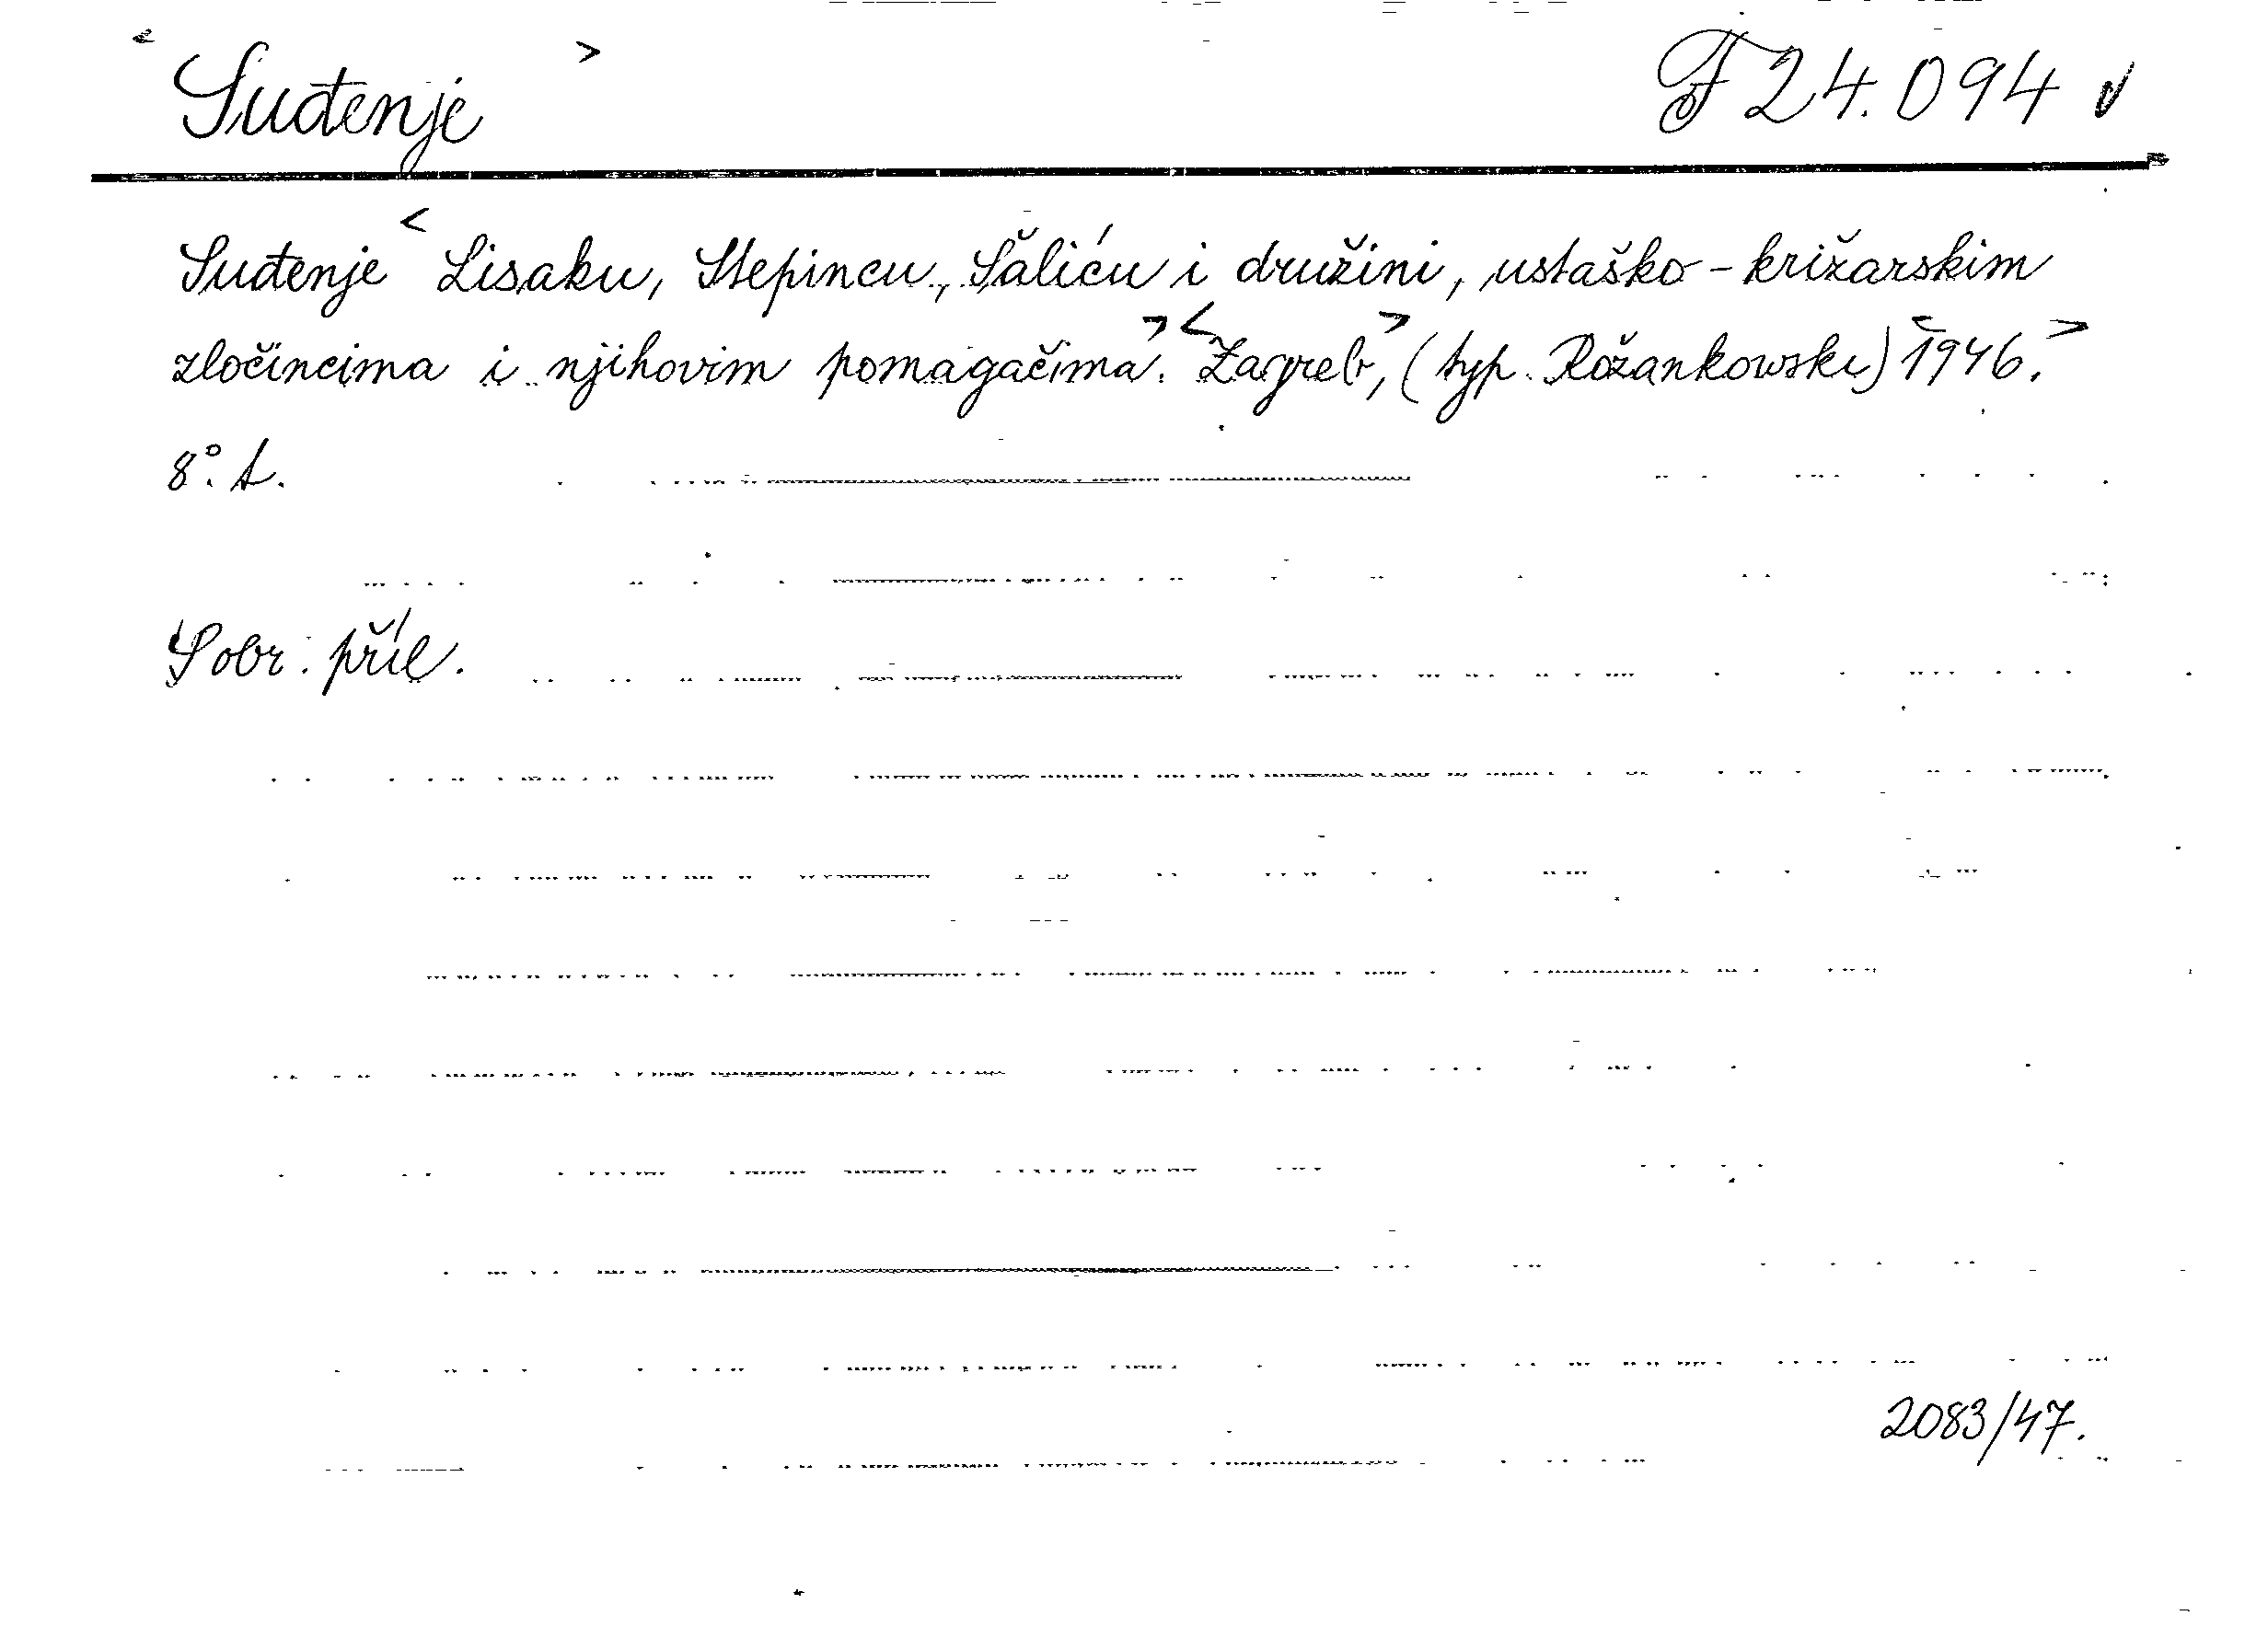 < Suđenje > F 24.094 v
Suđenje < Lisaku, Stepincu, Šaliću i družini, ustaško-križarskim
zločincima i njihovim pomagačima. > < Zagreb, > (typ. Rožankowski) < 1946. >
8°. s.
S obr. příl.
2083/47.